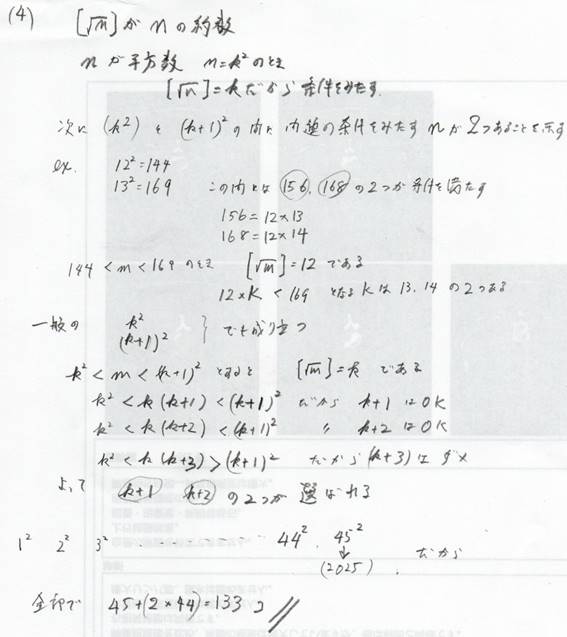 (4) [√n] が n の約数
n が平方数 n=k² のとき
[√n]=k だから 条件をみたす.
次に (k²) と (k+1)² の間に 問題の条件をみたす n が 2つあることを示す
ex. 12²=144
13²=169 この間には 156, 168 の2つが条件を満たす
156=12×13
168=12×14
144<n<169 のとき [√n]=12 である
12×K<169 となる K は 13, 14 の2つある
一般の k² (k+1)² } でも成り立つ
k²<n<(k+1)² とすると [√n]=k である
k²<k(k+1)<(k+1)² だから k+1 はOK
k²<k(k+2)<(k+1)² 〃 k+2 はOK
k²<k(k+3)>(k+1)² だから (k+3) はダメ
よって k+1 k+2 の2つが 選ばれる
1² 2² 3² ............ 44², 45² だから
↓
(2025)
全部で 45+(2×44)=133 コ